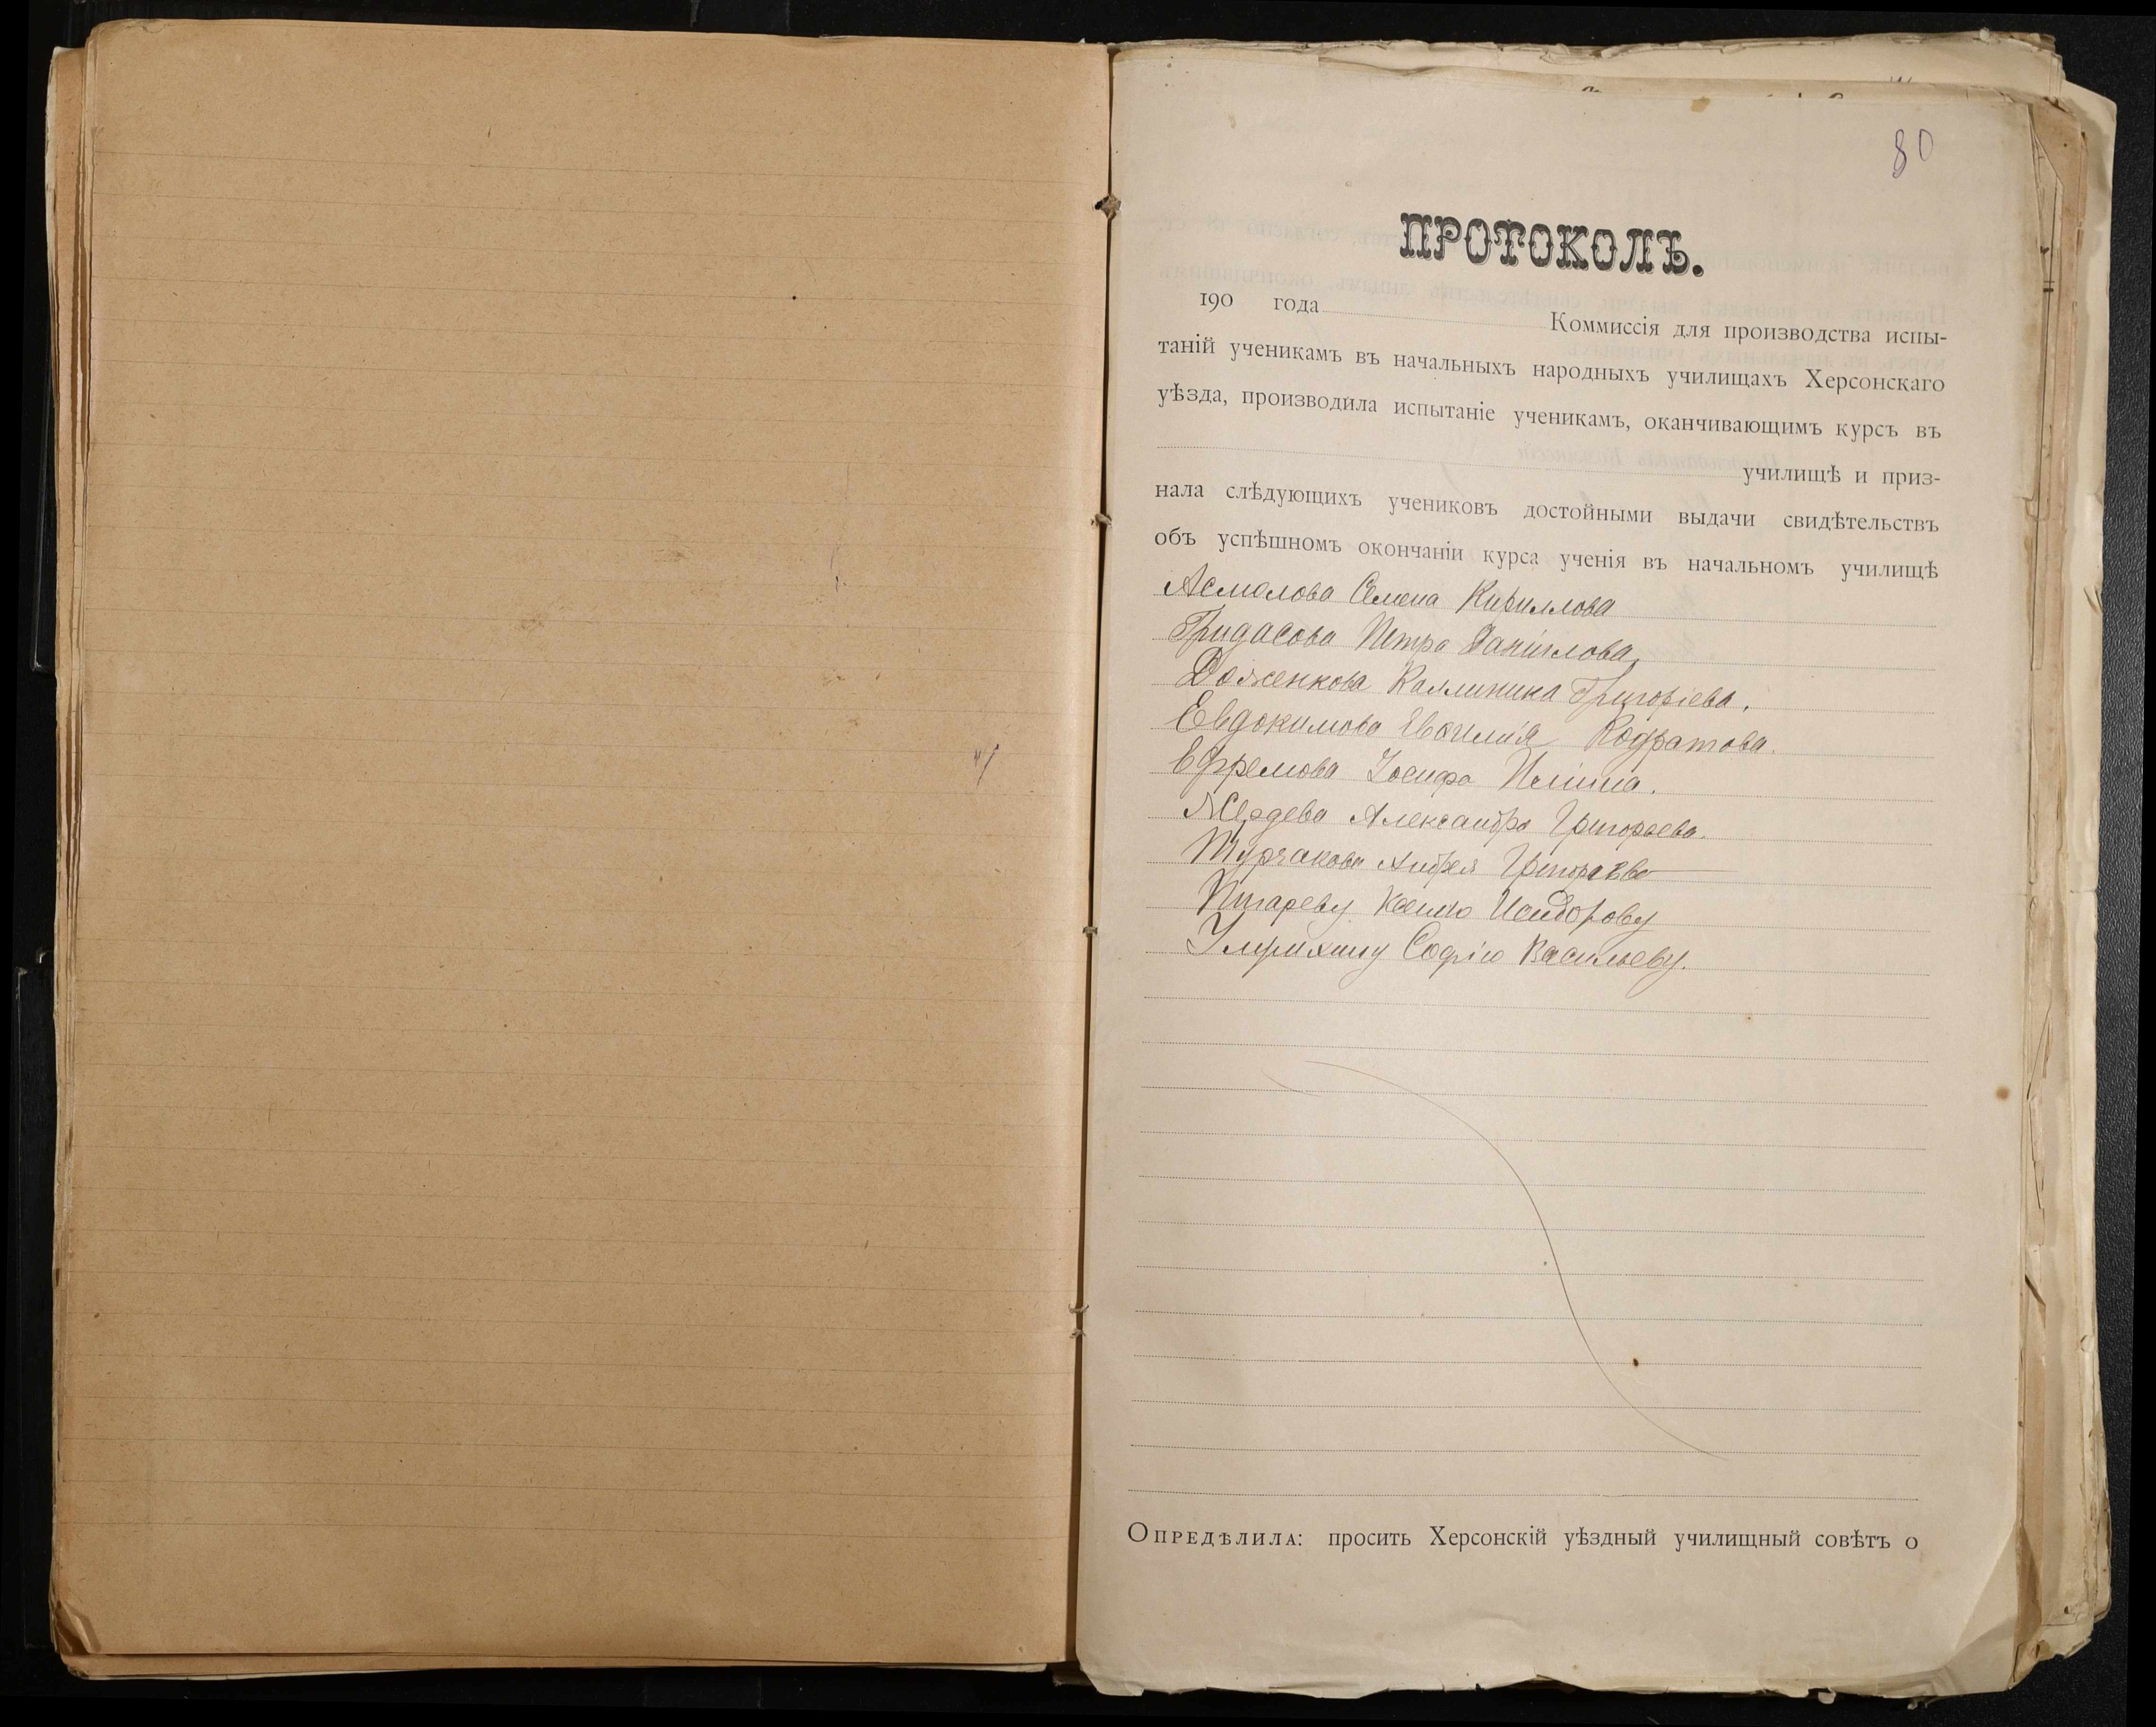 80
ПРОТОКОЛЪ.
190 года Коммиссія для производства испы-
таній ученикамъ въ начальныхъ народныхъ училищахъ Херсонскаго
уѣзда, производила испытаніе ученикамъ, оканчивающимъ курсъ въ
училищѣ и приз-
нала слѣдующихъ учениковъ достойными выдачи свидѣтельствъ
объ успѣшномъ окончаніи курса ученія въ начальномъ училищѣ
Асмолова Семена Кириллова
Гридасова Петра Даніилова,
Долженкова Каллиника Григоріева.
Евдокимова Кодратова.
Ефремова Іосифа Иліина.
Жердева Александра Григорьева.
Андрея
Ксенію Исидорову
Софію Васильеву.
Опредѣлила: просить Херсонскій уѣздный училищный совѣтъ о